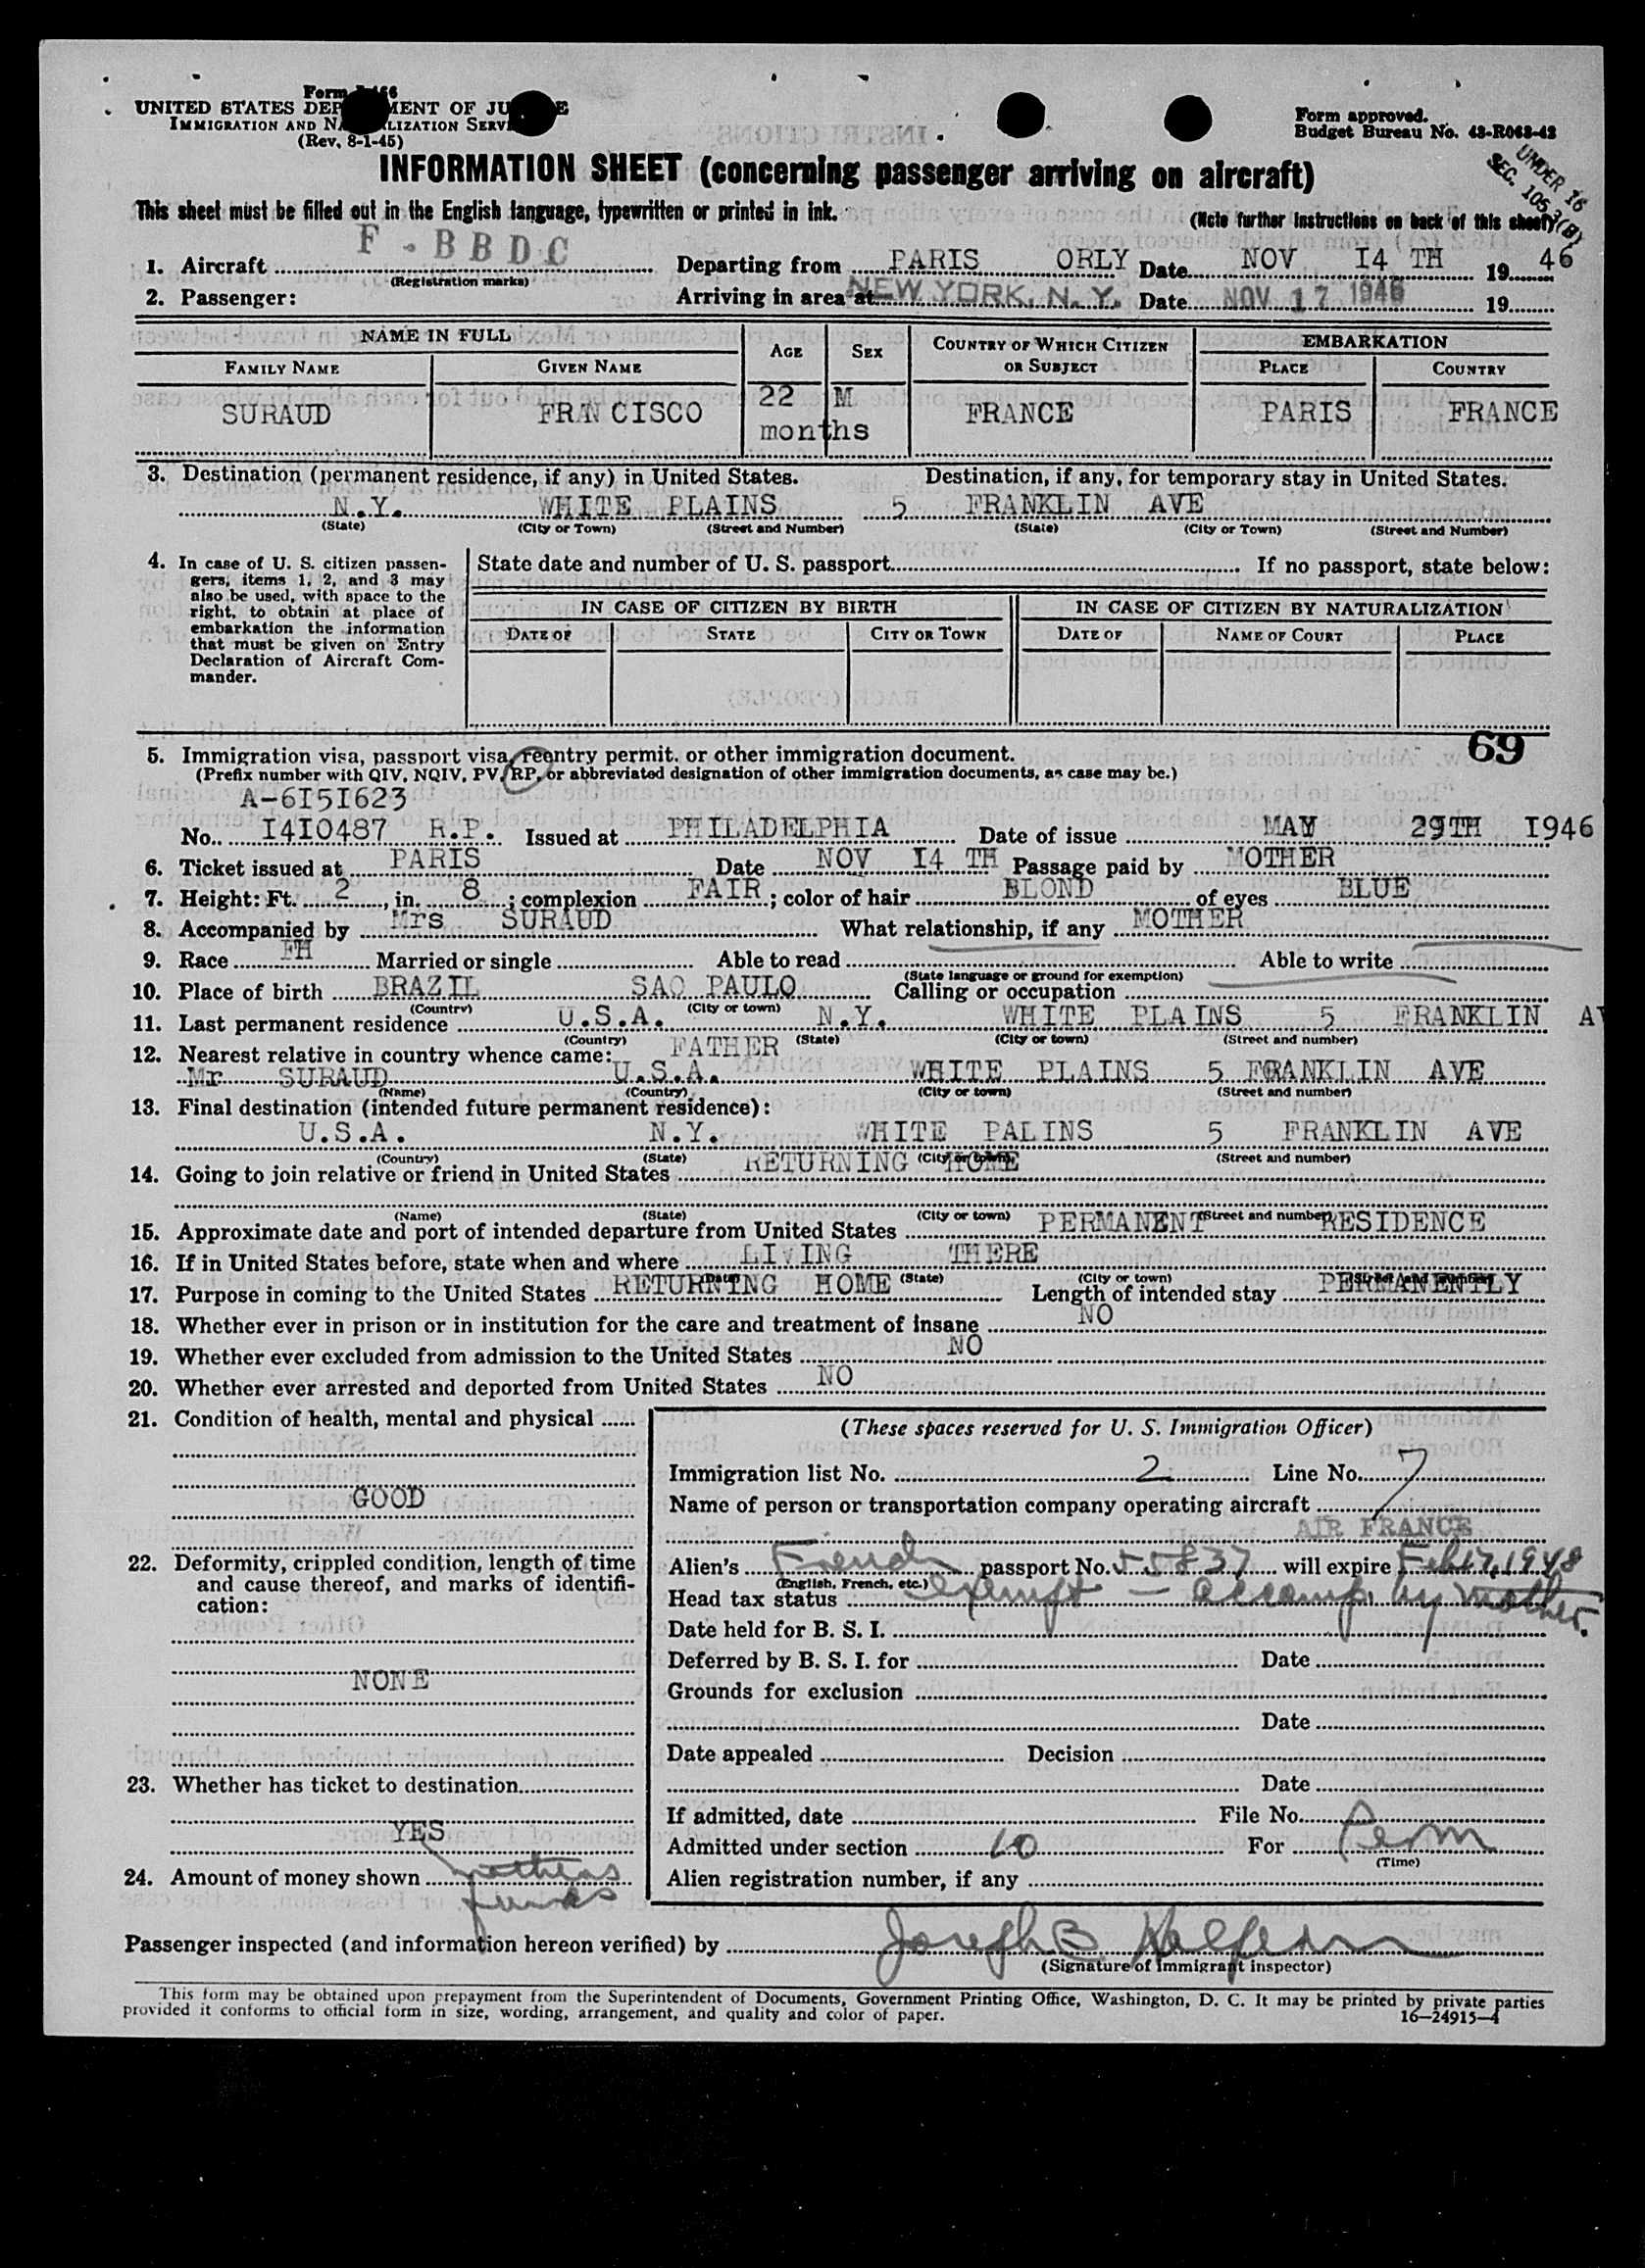 Form I-466
UNITED STATES DEPARTMENT OF JUSTICE
IMMIGRATION AND NATURALIZATION SERVICE
(Rev. 8-1-45)
Form approved.
Budget Bureau No. 43-R063-42
UNDER 16
SEC. 105.3(B)
INFORMATION SHEET (concerning passenger arriving on aircraft)
This sheet must be filled out in the English language, typewritten or printed in ink.
(Note further instructions on back of this sheet)
1. Aircraft F-BBDC Departing from PARIS ORLY Date NOV I4 TH 19 46
(Registration marks)
2. Passenger: Arriving in area at NEW YORK, N. Y. Date NOV 17 1946 19
NAME IN FULL AGE SEX COUNTRY OF WHICH CITIZEN OR SUBJECT EMBARKATION
FAMILY NAME GIVEN NAME PLACE COUNTRY
SURAUD FRANCISCO 22 months M FRANCE PARIS FRANCE
3. Destination (permanent residence, if any) in United States. Destination, if any, for temporary stay in United States.
N.Y. WHITE PLAINS 5 FRANKLIN AVE
(State) (City or Town) (Street and Number) (State) (City or Town) (Street and Number)
4. In case of U. S. citizen passen-
gers, items 1, 2, and 3 may
also be used, with space to the
right, to obtain at place of
embarkation the information
that must be given on Entry
Declaration of Aircraft Com-
mander.
State date and number of U. S. passport If no passport, state below:
IN CASE OF CITIZEN BY BIRTH IN CASE OF CITIZEN BY NATURALIZATION
DATE OF STATE CITY OR TOWN DATE OF NAME OF COURT PLACE
69
5. Immigration visa, passport visa, reentry permit. or other immigration document.
(Prefix number with QIV, NQIV, PV, RP, or abbreviated designation of other immigration documents, as case may be.)
A-6I5I623
No. I4I0487 R.P. Issued at PHILADELPHIA Date of issue MAY 29TH I946
6. Ticket issued at PARIS Date NOV I4 TH Passage paid by MOTHER
7. Height: Ft. 2, in. 8; complexion FAIR; color of hair BLOND of eyes BLUE
8. Accompanied by Mrs SURAUD What relationship, if any MOTHER
9. Race FH Married or single Able to read Able to write
(State language or ground for exemption)
10. Place of birth BRAZIL SAO PAULO Calling or occupation
(Country) (City or town)
11. Last permanent residence U.S.A. N.Y. WHITE PLAINS 5 FRANKLIN AV
(Country) (State) (City or town) (Street and number)
12. Nearest relative in country whence came: FATHER
Mr SURAUD U.S.A. WHITE PLAINS 5 FRANKLIN AVE
(Name) (Country) (City or town) (Street and number)
13. Final destination (intended future permanent residence):
U.S.A. N.Y. WHITE PALINS 5 FRANKLIN AVE
(Country) (State) (City or town) (Street and number)
14. Going to join relative or friend in United States RETURNING HOME
(Name) (State) (City or town) (Street and number)
15. Approximate date and port of intended departure from United States PERMANENT RESIDENCE
16. If in United States before, state when and where LIVING THERE
(Date) (State) (City or town) (Street and number)
17. Purpose in coming to the United States RETURNING HOME Length of intended stay PERMANENTLY
18. Whether ever in prison or in institution for the care and treatment of insane NO
19. Whether ever excluded from admission to the United States NO
20. Whether ever arrested and deported from United States NO
21. Condition of health, mental and physical
GOOD
22. Deformity, crippled condition, length of time
and cause thereof, and marks of identifi-
cation:
NONE
23. Whether has ticket to destination
YES
24. Amount of money shown mothers
funds
(These spaces reserved for U. S. Immigration Officer)
Immigration list No. 2 Line No. 7
Name of person or transportation company operating aircraft
AIR FRANCE
Alien's French passport No. 55837 will expire Feb 17, 1948
(English, French, etc.)
Head tax status exempt - accomp. by mother.
Date held for B. S. I.
Deferred by B. S. I. for Date
Grounds for exclusion
Date
Date appealed Decision
Date
If admitted, date File No.
Admitted under section 10 For Perm
(Time)
Alien registration number, if any
Passenger inspected (and information hereon verified) by Joseph B. Halpern
(Signature of immigrant inspector)
This form may be obtained upon prepayment from the Superintendent of Documents, Government Printing Office, Washington, D. C. It may be printed by private parties
provided it conforms to official form in size, wording, arrangement, and quality and color of paper.
16—24915-4